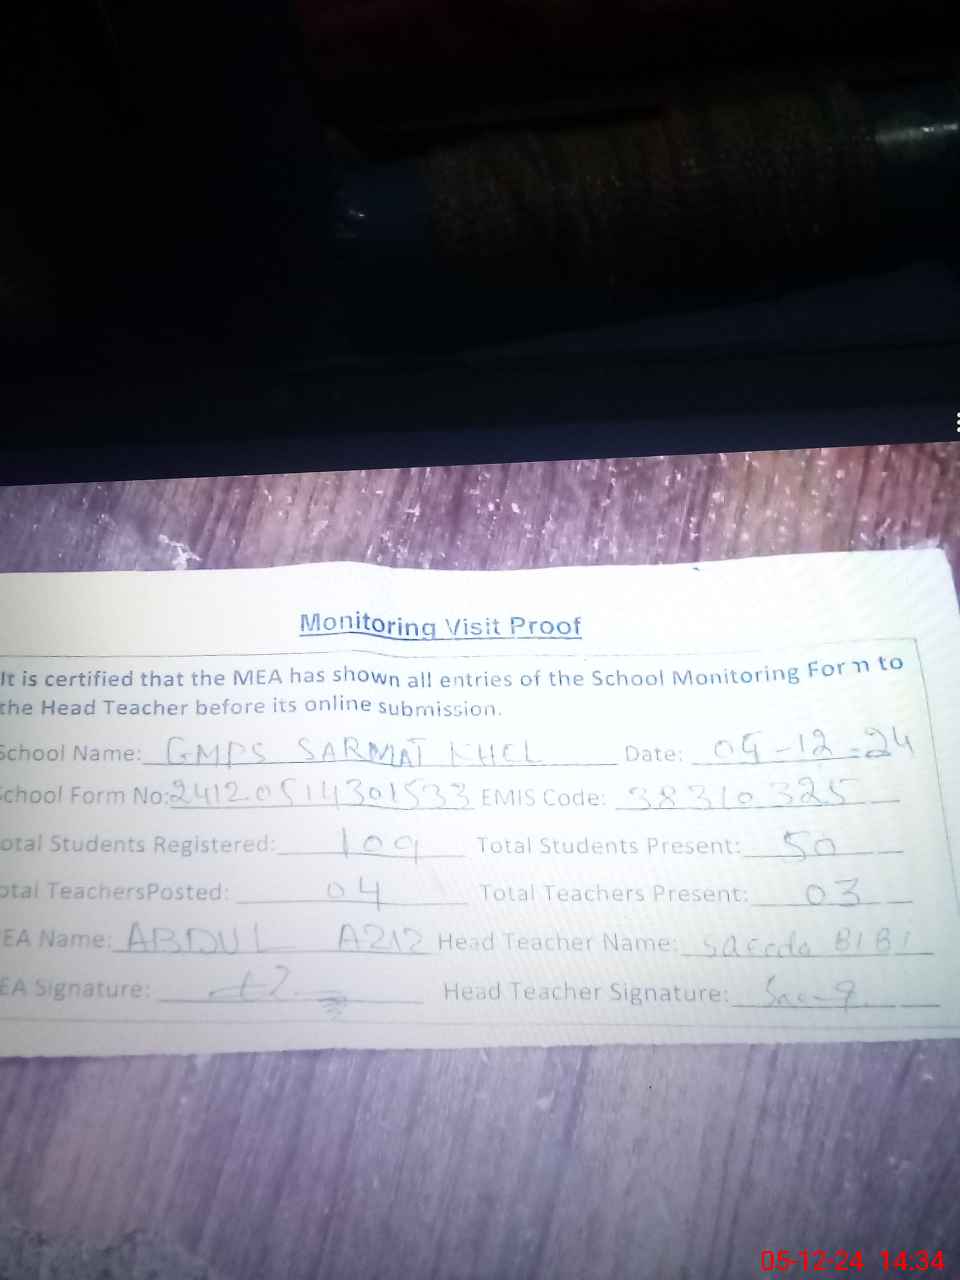 Monitoring Visit Proof
It is certified that the MEA has shown all entries of the School Monitoring Form to
the Head Teacher before its online submission.
School Name: GMPS SARMAT KHEL Date: 05-12-24
School Form No: 2412.0514301533 EMIS Code: 38310325
otal Students Registered: 109 Total Students Present: 50
otal TeachersPosted: 04 Total Teachers Present: 03
EA Name: ABDUL AZIZ Head Teacher Name: Saeeda BIBI
EA Signature: Head Teacher Signature:
05-12-24 14:34